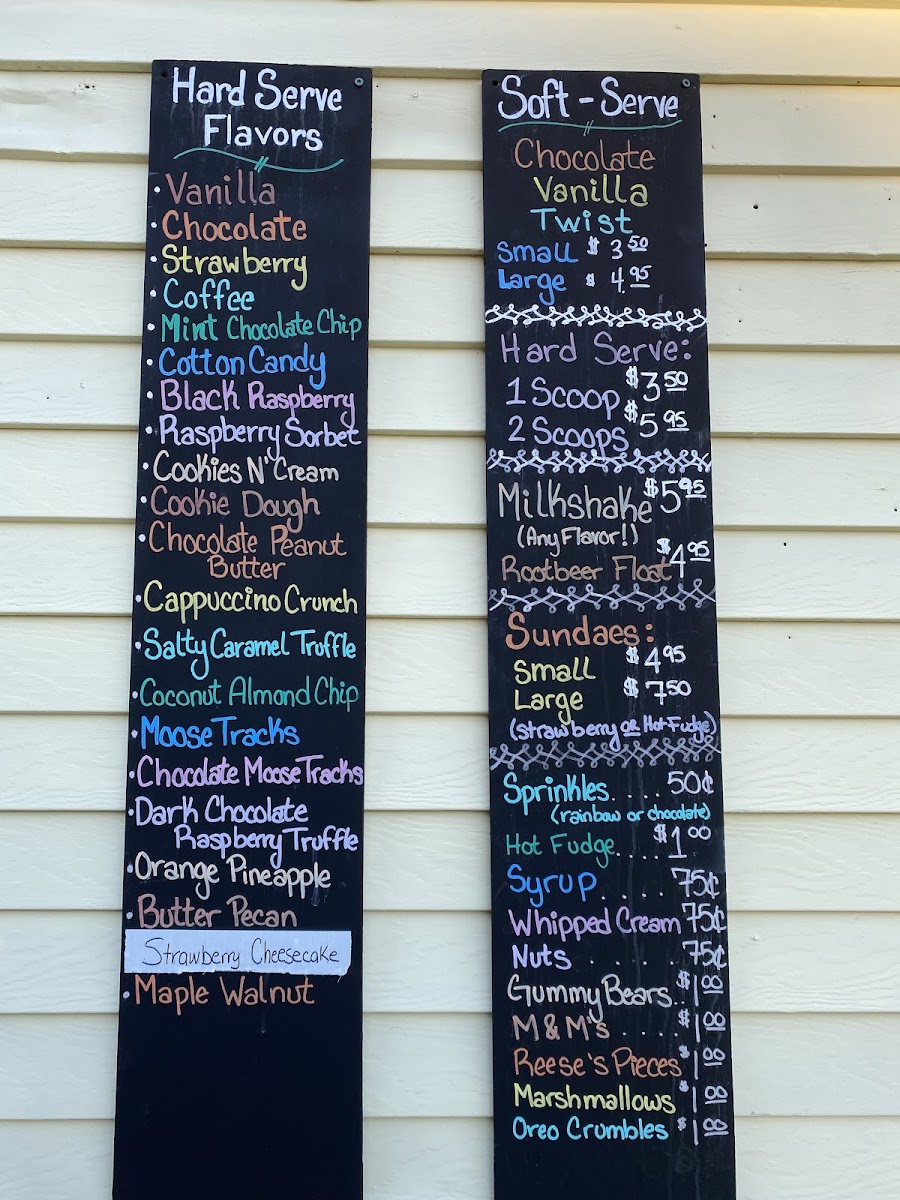 Hard Serve
Flavors
• Vanilla
• Chocolate
• Strawberry
• Coffee
• Mint Chocolate Chip
• Cotton Candy
• Black Raspberry
• Raspberry Sorbet
• Cookies N' Cream
• Cookie Dough
• Chocolate Peanut
Butter
• Cappuccino Crunch
• Salty Caramel Truffle
• Coconut Almond Chip
• Moose Tracks
• Chocolate Moose Tracks
• Dark Chocolate
Raspberry Truffle
• Orange Pineapple
• Butter Pecan
Strawberry Cheesecake
• Maple Walnut
Soft-Serve
Chocolate
Vanilla
Twist
Small $3.50
Large $4.95
Hard Serve:
1 Scoop $3.50
2 Scoops $5.95
Milkshake $5.95
(Any Flavor!)
Rootbeer Float $4.95
Sundaes:
Small $4.95
Large $7.50
(strawberry or Hot Fudge)
Sprinkles.... 50¢
(rainbow or chocolate)
Hot Fudge.... $1.00
Syrup.... 75¢
Whipped Cream 75¢
Nuts.... 75¢
Gummy Bears.. $1.00
M & M's.... $1.00
Reese's Pieces $1.00
Marshmallows $1.00
Oreo Crumbles $1.00